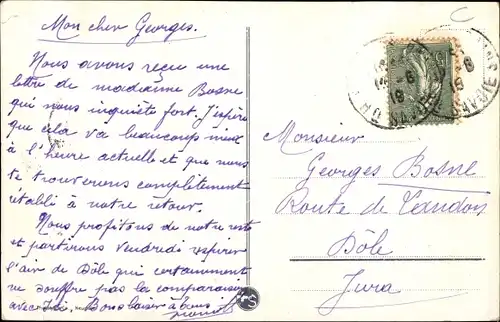 Mon cher Georges.
Nous avons reçu une
lettre de madame Bosne
qui nous inquiète fort. J'espère
que cela va beaucoup mieux
à l'heure actuelle et que nous
te trouverons complètement
établi à notre retour.
Nous profitons de notre reste
et partirons vendredi respirer
l'air de Dôle qui certainement
ne souffre pas la comparaison
avec Bons baiser à tous
Monsieur
Georges Bosne
Route de
Dôle
Jura